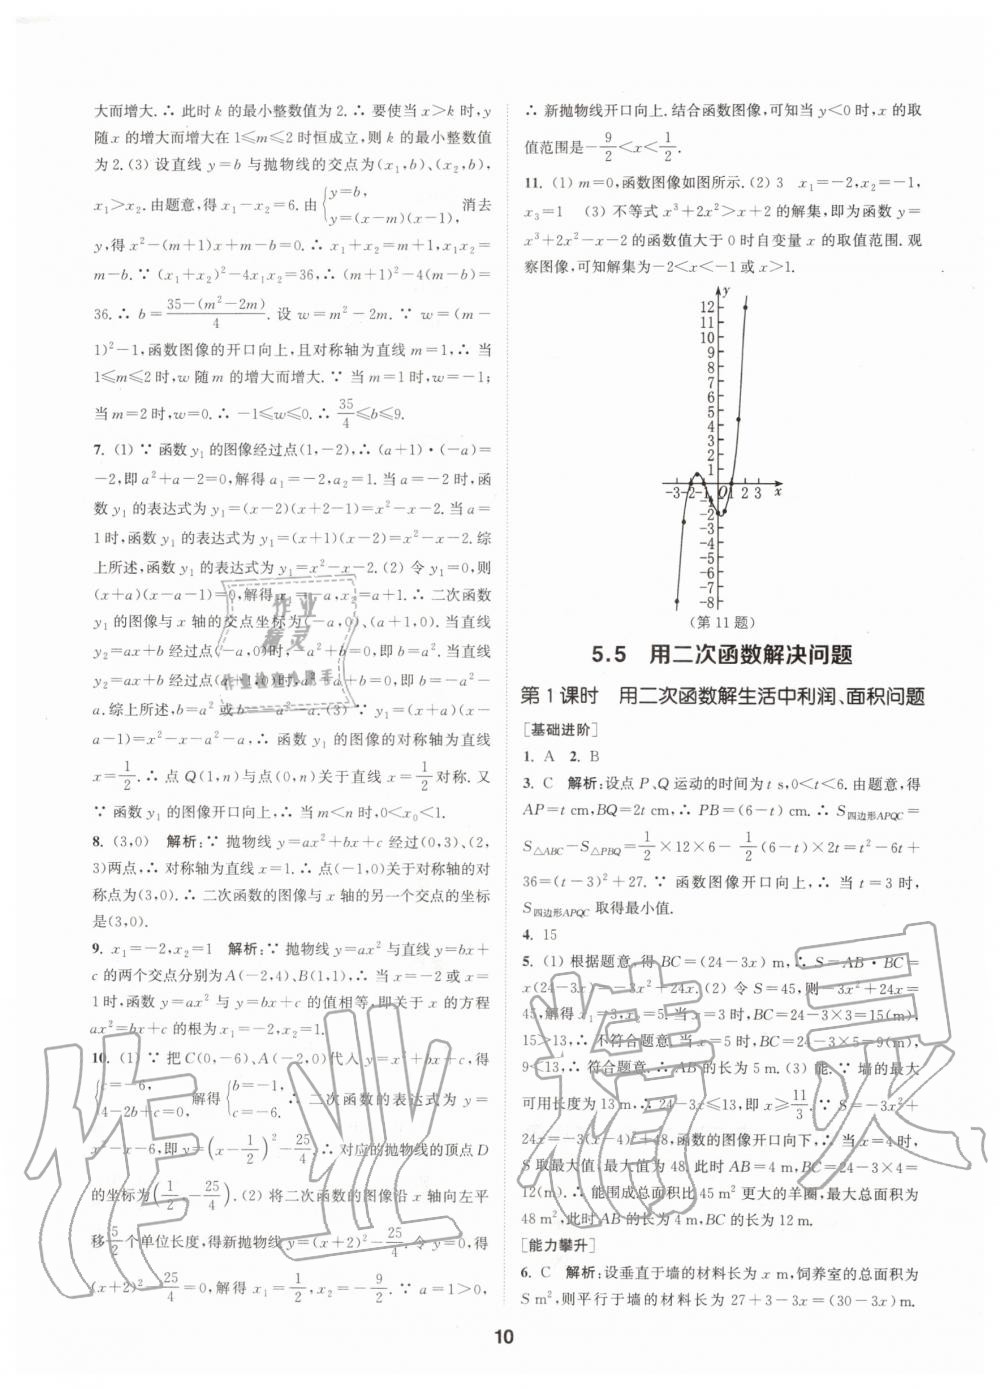 大而增大.∴ 此时 k 的最小整数值为 2.∴ 要使当 x>k 时,y
随 x 的增大而增大在 1⩽m⩽2 时恒成立,则 k 的最小整数值
为 2.(3) 设直线 y=b 与抛物线的交点为(x₁,b)、(x₂,b),
x₁>x₂.由题意,得 x₁-x₂=6.由{y=b, y=(x-m)(x-1),消去
y,得 x²-(m+1)x+m-b=0.∴ x₁+x₂=m+1,x₁x₂=
m-b.∵ (x₁+x₂)²-4x₁x₂=36,∴ (m+1)²-4(m-b)=
36.∴ b=35-(m²-2m)/4.设 w=m²-2m.∵ w=(m-
1)²-1,函数图像的开口向上,且对称轴为直线 m=1,∴ 当
1⩽m⩽2 时,w 随 m 的增大而增大.∵ 当 m=1 时,w=-1;
当 m=2 时,w=0.∴ -1⩽w⩽0.∴ 35/4⩽b⩽9.
7. (1) ∵ 函数 y₁ 的图像经过点(1,-2),∴ (a+1)·(-a)=
-2,即 a²+a-2=0,解得 a₁=-2,a₂=1.当 a=-2 时,函
数 y₁ 的表达式为 y₁=(x-2)(x+2-1)=x²-x-2.当 a=
1 时,函数 y₁ 的表达式为 y₁=(x+1)(x-2)=x²-x-2.综
上所述,函数 y₁ 的表达式为 y₁=x²-x-2.(2) 令 y₁=0,则
(x+a)(x-a-1)=0,解得 x₁=-a,x₂=a+1.∴ 二次函数
y₁ 的图像与 x 轴的交点坐标为(-a,0)、(a+1,0).当直线
y₂=ax+b 经过点(-a,0)时,-a²+b=0,即 b=a².当直线
y₂=ax+b 经过点(a+1,0)时,a²+a+b=0,即 b=-a²-
a.综上所述,b=a² 或 b=-a²-a.(3) ∵ y₁=(x+a)(x-
a-1)=x²-x-a²-a,∴ 函数 y₁ 的图像的对称轴为直线
x=1/2.∴ 点 Q(1,n)与点(0,n)关于直线 x=1/2对称.又
∵ 函数 y₁ 的图像开口向上,∴ 当 m<n 时,0<x₀<1.
8. (3,0) 解析:∵ 抛物线 y=ax²+bx+c 经过(0,3)、(2,
3)两点,∴ 对称轴为直线 x=1.∴ 点(-1,0)关于对称轴的对
称点为(3,0).∴ 二次函数的图像与 x 轴的另一个交点的坐标
是(3,0).
9. x₁=-2,x₂=1 解析:∵ 抛物线 y=ax² 与直线 y=bx+
c 的两个交点分别为 A(-2,4)、B(1,1),∴ 当 x=-2 或 x=
1 时,函数 y=ax² 与 y=bx+c 的值相等,即关于 x 的方程
ax²=bx+c 的根为 x₁=-2,x₂=1.
10. (1) ∵ 把 C(0,-6)、A(-2,0)代入 y=x²+bx+c,得
{c=-6, 4-2b+c=0,解得{b=-1, c=-6.∴ 二次函数的表达式为 y=
x²-x-6,即 y=(x-1/2)²-25/4.∴ 对应的抛物线的顶点 D
的坐标为(1/2,-25/4).(2) 将二次函数的图像沿 x 轴向左平
移5/2个单位长度,得新抛物线 y=(x+2)²-25/4.令 y=0,得
(x+2)²-25/4=0,解得 x₁=1/2,x₂=-9/2.∵ a=1>0,
∴ 新抛物线开口向上.结合函数图像,可知当 y<0 时,x 的取
值范围是-9/2<x<1/2.
11. (1) m=0,函数图像如图所示.(2) 3 x₁=-2,x₂=-1,
x₃=1 (3) 不等式 x³+2x²>x+2 的解集,即为函数 y=
x³+2x²-x-2 的函数值大于 0 时自变量 x 的取值范围.观
察图像,可知解集为-2<x<-1 或 x>1.
y
12
11
10
9
8
7
6
5
4
3
2
1
-3-2-1 O 1 2 3 x
-1
-2
-3
-4
-5
-6
-7
-8
(第 11 题)
5.5 用二次函数解决问题
第 1 课时 用二次函数解生活中利润、面积问题
[基础进阶]
1. A 2. B
3. C 解析:设点 P、Q 运动的时间为 t s,0<t<6.由题意,得
AP=t cm,BQ=2t cm,∴ PB=(6-t) cm.∴ S四边形APQC=
S△ABC-S△PBQ=1/2×12×6-1/2(6-t)×2t=t²-6t+
36=(t-3)²+27.∵ 函数图像开口向上,∴ 当 t=3 时,
S四边形APQC 取得最小值.
4. 15
5. (1) 根据题意,得 BC=(24-3x) m,∴ S=AB·BC=
x(24-3x)=-3x²+24x.(2) 令 S=45,则-3x²+24x=
45,解得 x₁=3,x₂=5.当 x=3 时,BC=24-3×3=15(m),
15>13,∴ 不符合题意.当 x=5 时,BC=24-3×5=9(m),
9<13,∴ 符合题意.∴ AB 的长为 5 m.(3) 能.∵ 墙的最大
可用长度为 13 m,∴ 24-3x⩽13,即 x⩾11/3.∵ S=-3x²+
24x=-3(x-4)²+48,函数的图像开口向下,∴ 当 x=4 时,
S 取最大值,最大值为 48.此时 AB=4 m,BC=24-3×4=
12(m).∴ 能围成总面积比 45 m² 更大的羊圈,最大总面积为
48 m²,此时 AB 的长为 4 m,BC 的长为 12 m.
[能力攀升]
6. C 解析:设垂直于墙的材料长为 x m,饲养室的总面积为
S m²,则平行于墙的材料长为 27+3-3x=(30-3x) m.
10
作业
精灵
作业检查小助手
作业精灵